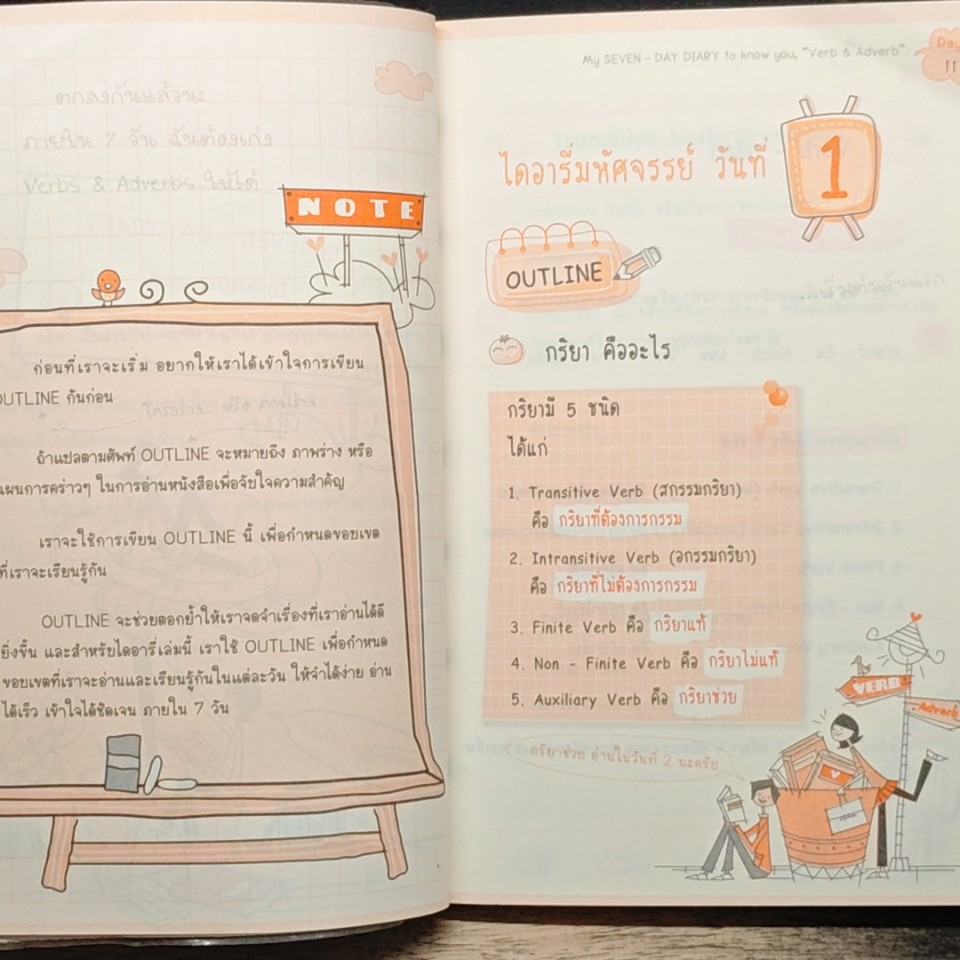 ตกลงกันแล้วนะ
ภายใน 7 วัน ฉันต้องเก่ง
Verbs & Adverbs ให้ได้
NOTE
ก่อนที่เราจะเริ่ม อยากให้เราได้เข้าใจการเขียน
OUTLINE กันก่อน
ถ้าแปลตามศัพท์ OUTLINE จะหมายถึง ภาพร่าง หรือ
แผนการคร่าวๆ ในการอ่านหนังสือเพื่อจับใจความสำคัญ
เราจะใช้การเขียน OUTLINE นี้ เพื่อกำหนดขอบเขต
ที่เราจะเรียนรู้กัน
OUTLINE จะช่วยตอกย้ำให้เราจดจำเรื่องที่เราอ่านได้ดี
ยิ่งขึ้น และสำหรับไดอารี่เล่มนี้ เราใช้ OUTLINE เพื่อกำหนด
ขอบเขตที่เราจะอ่านและเรียนรู้กันในแต่ละวัน ให้จำได้ง่าย อ่าน
ได้เร็ว เข้าใจได้ชัดเจน ภายใน 7 วัน
My SEVEN - DAY DIARY to know you, "Verb & Adverb".
Day
11
ไดอารี่มหัศจรรย์ วันที่ 1
OUTLINE
กริยา คืออะไร
กริยามี 5 ชนิด
ได้แก่
1. Transitive Verb (สกรรมกริยา)
คือ กริยาที่ต้องการกรรม
2. Intransitive Verb (อกรรมกริยา)
คือ กริยาที่ไม่ต้องการกรรม
3. Finite Verb คือ กริยาแท้
4. Non - Finite Verb คือ กริยาไม่แท้
5. Auxiliary Verb คือ กริยาช่วย
กริยาช่วย อ่านในวันที่ 2 นะครับ
VERB
Adverb
V